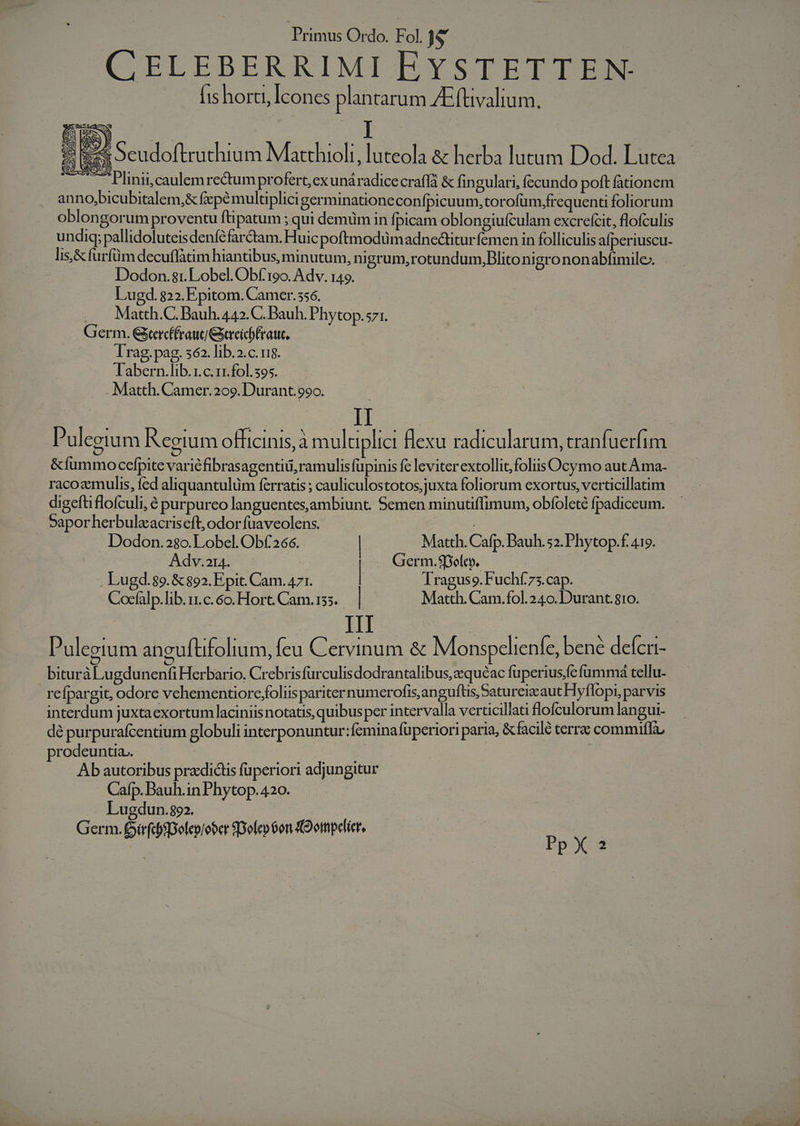 Primus Ordo. Fol. 15
CELEBERRIMI EYSTETTEN-
ſis horti, Icones plantarum Æſtivalium.
I
PSeudoſtruthium Matthioli, luteola & herba lutum Dod. Lutea
Plinii, caulem rectum profert, ex unâ radice craſſâ & ſingulari, ſecundo poſt ſationem
anno, bicubitalem, & ſæpè multiplici germinatione conſpicuum, toroſum, frequenti foliorum
oblongorum proventu ſtipatum; qui demùm in ſpicam oblongiuſculam excreſcit, floſculis
undiq; pallido luteis denſè farctam. Huic poſtmodùm adnectitur ſemen in folliculis aſperiuscu-
lis, & ſurſùm decuſſàtim hiantibus, minutum, nigrum, rotundum, Blito nigro non abſimile.
Dodon. 81. Lobel. Obſ. 190. Adv. 149.
Lugd. 822. Epitom. Camer. 356.
Matth. C. Bauh. 442. C. Bauh. Phytop. 571.
Germ. Sterckkraut/ Streichkraut.
Trag. pag. 362. lib. 2. c. 118.
Tabern. lib. 1. c. 11. fol. 395.
Matth. Camer. 209. Durant. 990.
II
Pulegium Regium officinis, à multiplici flexu radicularum, tranſuerſim
& ſummo ceſpite variè fibras agentiũ, ramulis ſupinis ſe leviter extollit, foliis Ocymo aut Ama-
raco æmulis, ſed aliquantulùm ſerratis; cauliculos totos, juxta foliorum exortus, verticillatim
digeſti floſculi, è purpureo languentes, ambiunt. Semen minutiſſimum, obſoletè ſpadiceum.
Sapor herbulæ acris eſt, odor ſuaveolens.
Dodon. 280. Lobel. Obſ. 266.
Adv. 214.
Lugd. 89. & 892. Epit. Cam. 471.
Cœſalp. lib. 11. c. 60. Hort. Cam. 135.
Matth. Caſp. Bauh. 52. Phytop. f. 419.
Germ. Poley.
Tragus 9. Fuchſ. 75. cap.
Matth. Cam. fol. 240. Durant. 810.
III
Pulegium anguſtifolium, ſeu Cervinum & Monspelienſe, benè deſcri-
bitur à Lugdunenſi Herbario. Crebris ſurculis dodrantalibus, æquè ac ſuperius, ſe ſummâ tellu-
re ſpargit, odore vehementiore, foliis pariter numeroſis, anguſtis, Satureiæ aut Hyſſopi, parvis
interdum juxta exortum laciniis notatis, quibus per intervalla verticillati floſculorum langui-
dè purpuraſcentium globuli interponuntur: ſemina ſuperiori paria, & facilè terræ commiſſa
prodeuntia.
Ab autoribus prædictis ſuperiori adjungitur
Caſp. Bauh. in Phytop. 420.
Lugdun. 892.
Germ. Hirſch Poley/ oder Poley von Mompelier.
Pp X 2